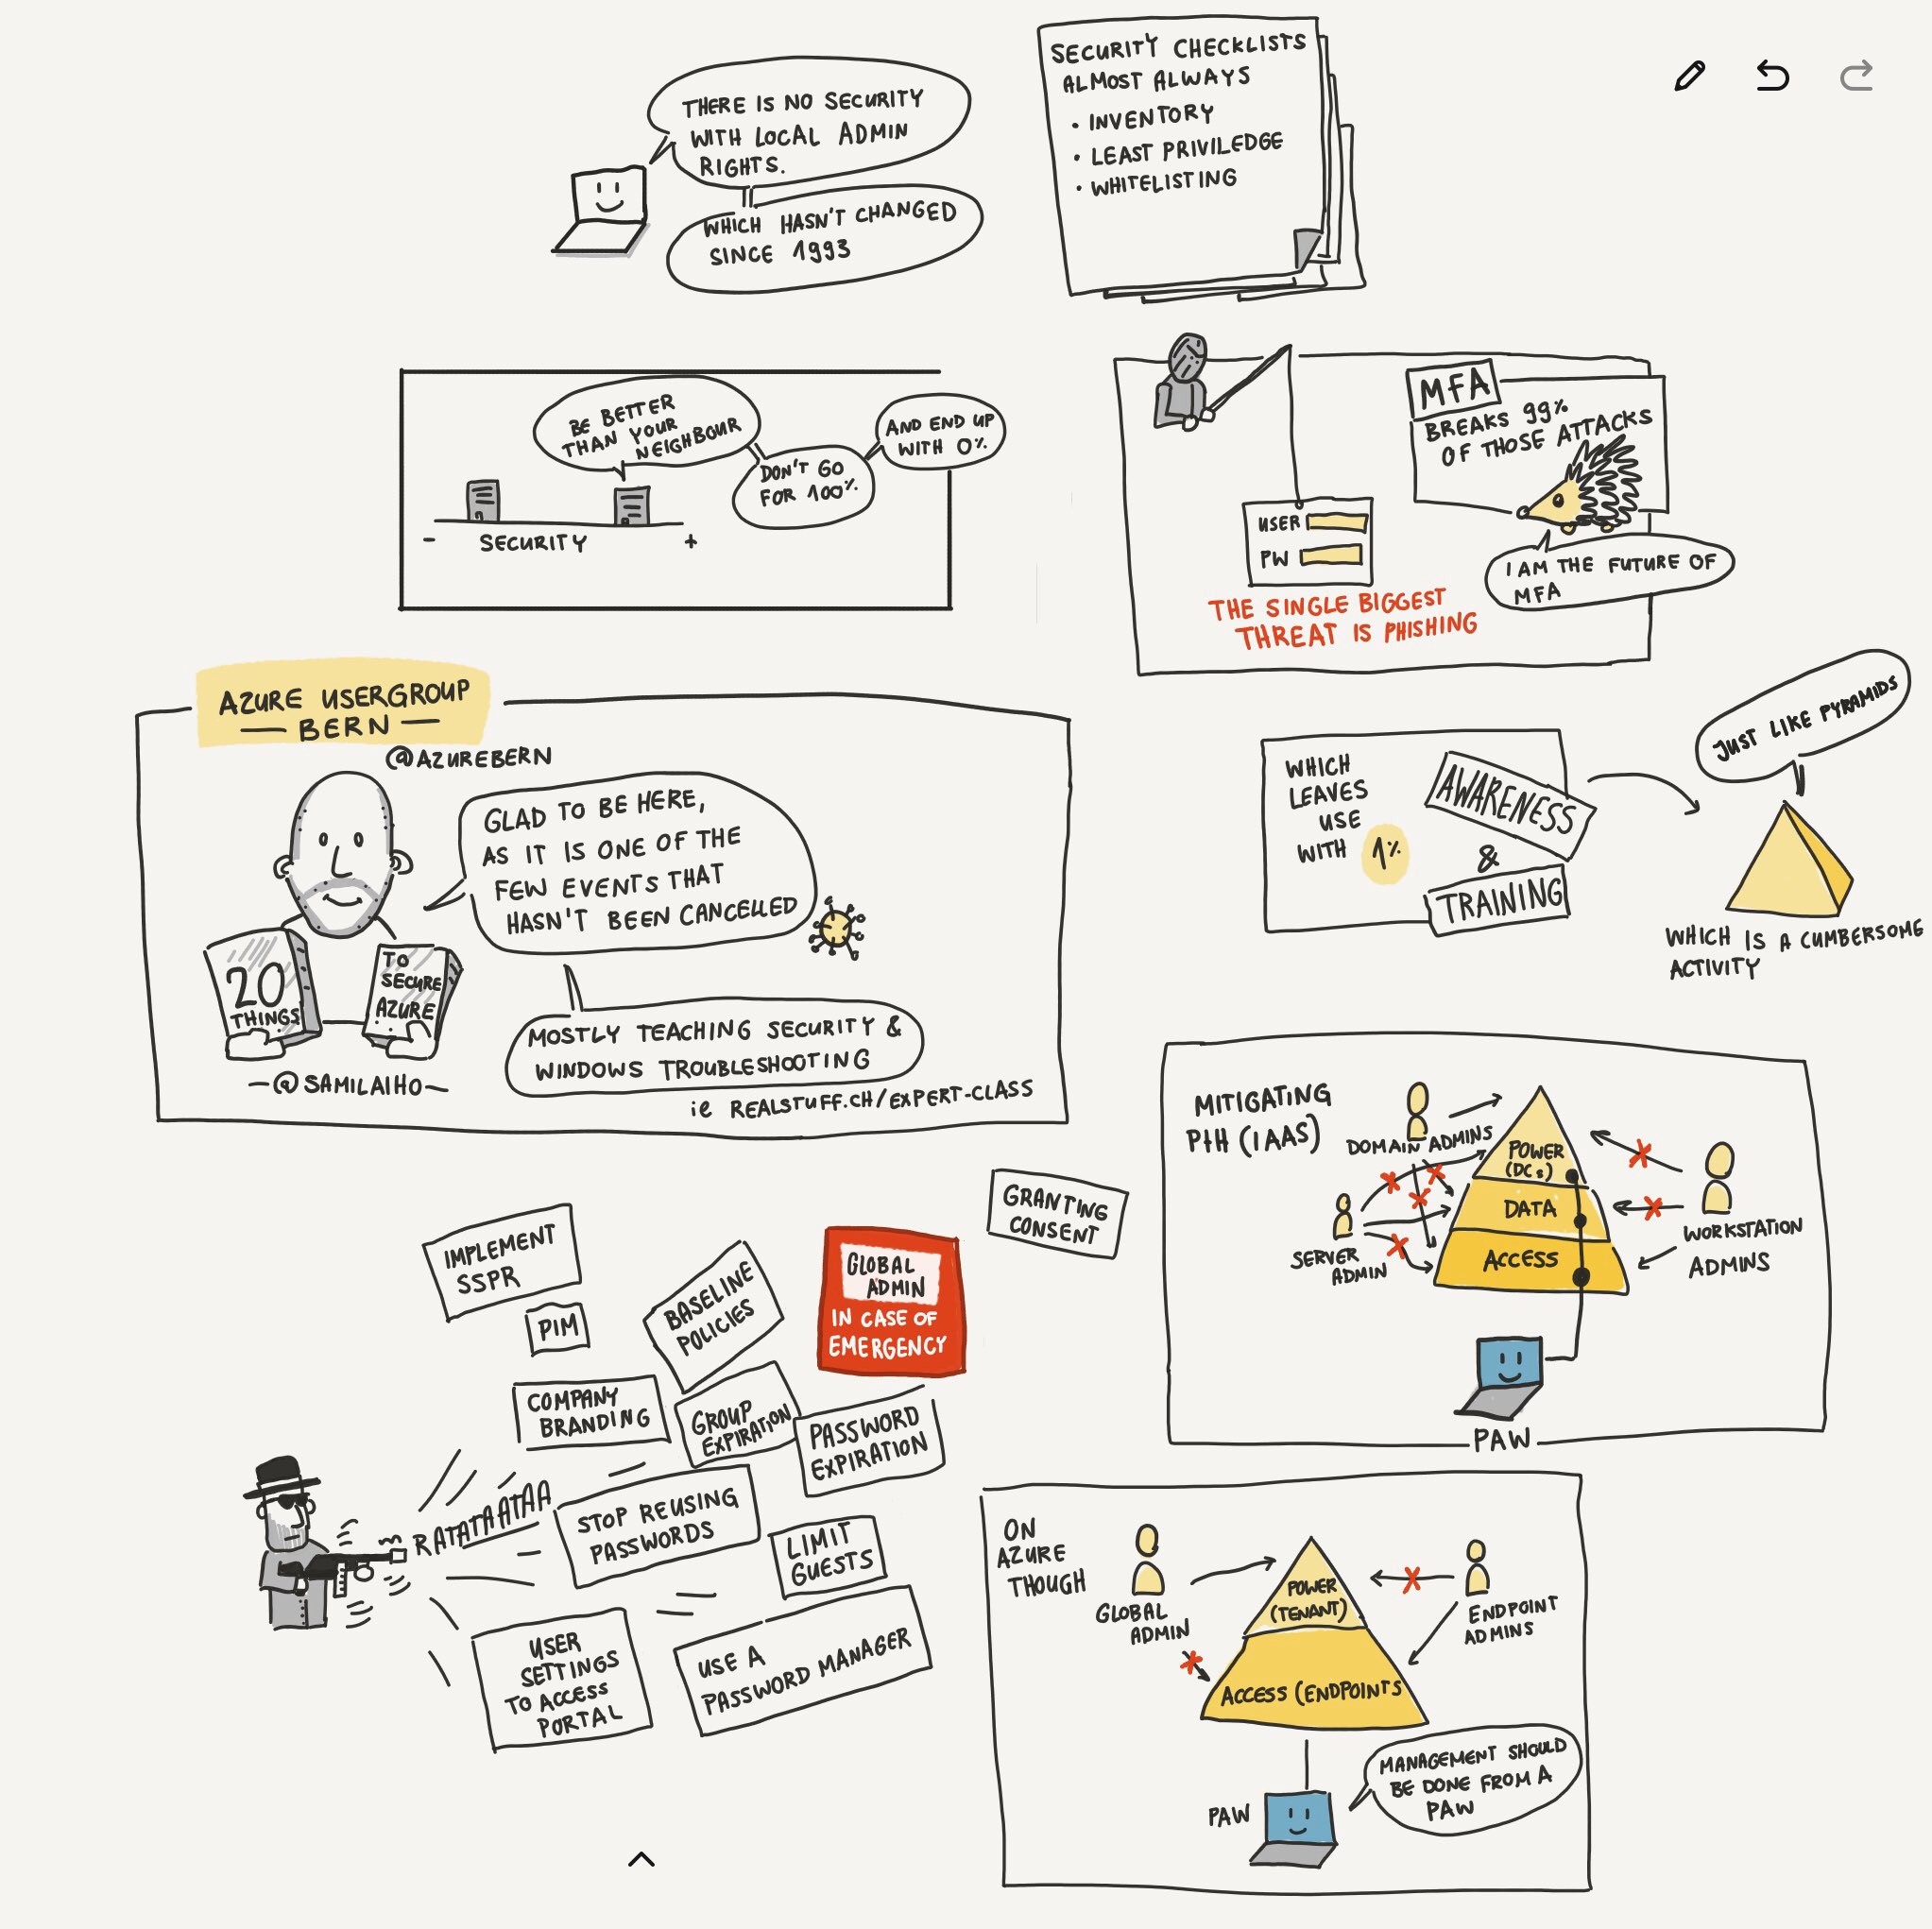 THERE IS NO SECURITY
WITH LOCAL ADMIN
RIGHTS.
WHICH HASN'T CHANGED
SINCE 1993
SECURITY CHECKLISTS
ALMOST ALWAYS
• INVENTORY
• LEAST PRIVILEDGE
• WHITELISTING
BE BETTER
THAN YOUR
NEIGHBOUR
DON'T GO
FOR 100%
AND END UP
WITH 0%
- SECURITY +
MFA
BREAKS 99%
OF THOSE ATTACKS
USER
PW
I AM THE FUTURE OF
MFA
THE SINGLE BIGGEST
THREAT IS PHISHING
AZURE USERGROUP
— BERN —
@AZUREBERN
GLAD TO BE HERE,
AS IT IS ONE OF THE
FEW EVENTS THAT
HASN'T BEEN CANCELLED
20
THINGS
TO
SECURE
AZURE
MOSTLY TEACHING SECURITY &
WINDOWS TROUBLESHOOTING
—@SAMILAIHO—
ie REALSTUFF.CH/EXPERT-CLASS
WHICH
LEAVES
USE
WITH 1%
AWARENESS
&
TRAINING
JUST LIKE PYRAMIDS
WHICH IS A CUMBERSOME
ACTIVITY
MITIGATING
PTH (IAAS)
DOMAIN ADMINS
SERVER
ADMIN
POWER
(DCs)
DATA
ACCESS
WORKSTATION
ADMINS
PAW
IMPLEMENT
SSPR
PIM
BASELINE
POLICIES
GLOBAL
ADMIN
IN CASE OF
EMERGENCY
GRANTING
CONSENT
COMPANY
BRANDING
GROUP
EXPIRATION
PASSWORD
EXPIRATION
RATATAATAA
STOP REUSING
PASSWORDS
LIMIT
GUESTS
USER
SETTINGS
TO ACCESS
PORTAL
USE A
PASSWORD MANAGER
ON
AZURE
THOUGH
GLOBAL
ADMIN
POWER
(TENANT)
ENDPOINT
ADMINS
ACCESS (ENDPOINTS
MANAGEMENT SHOULD
BE DONE FROM A
PAW
PAW